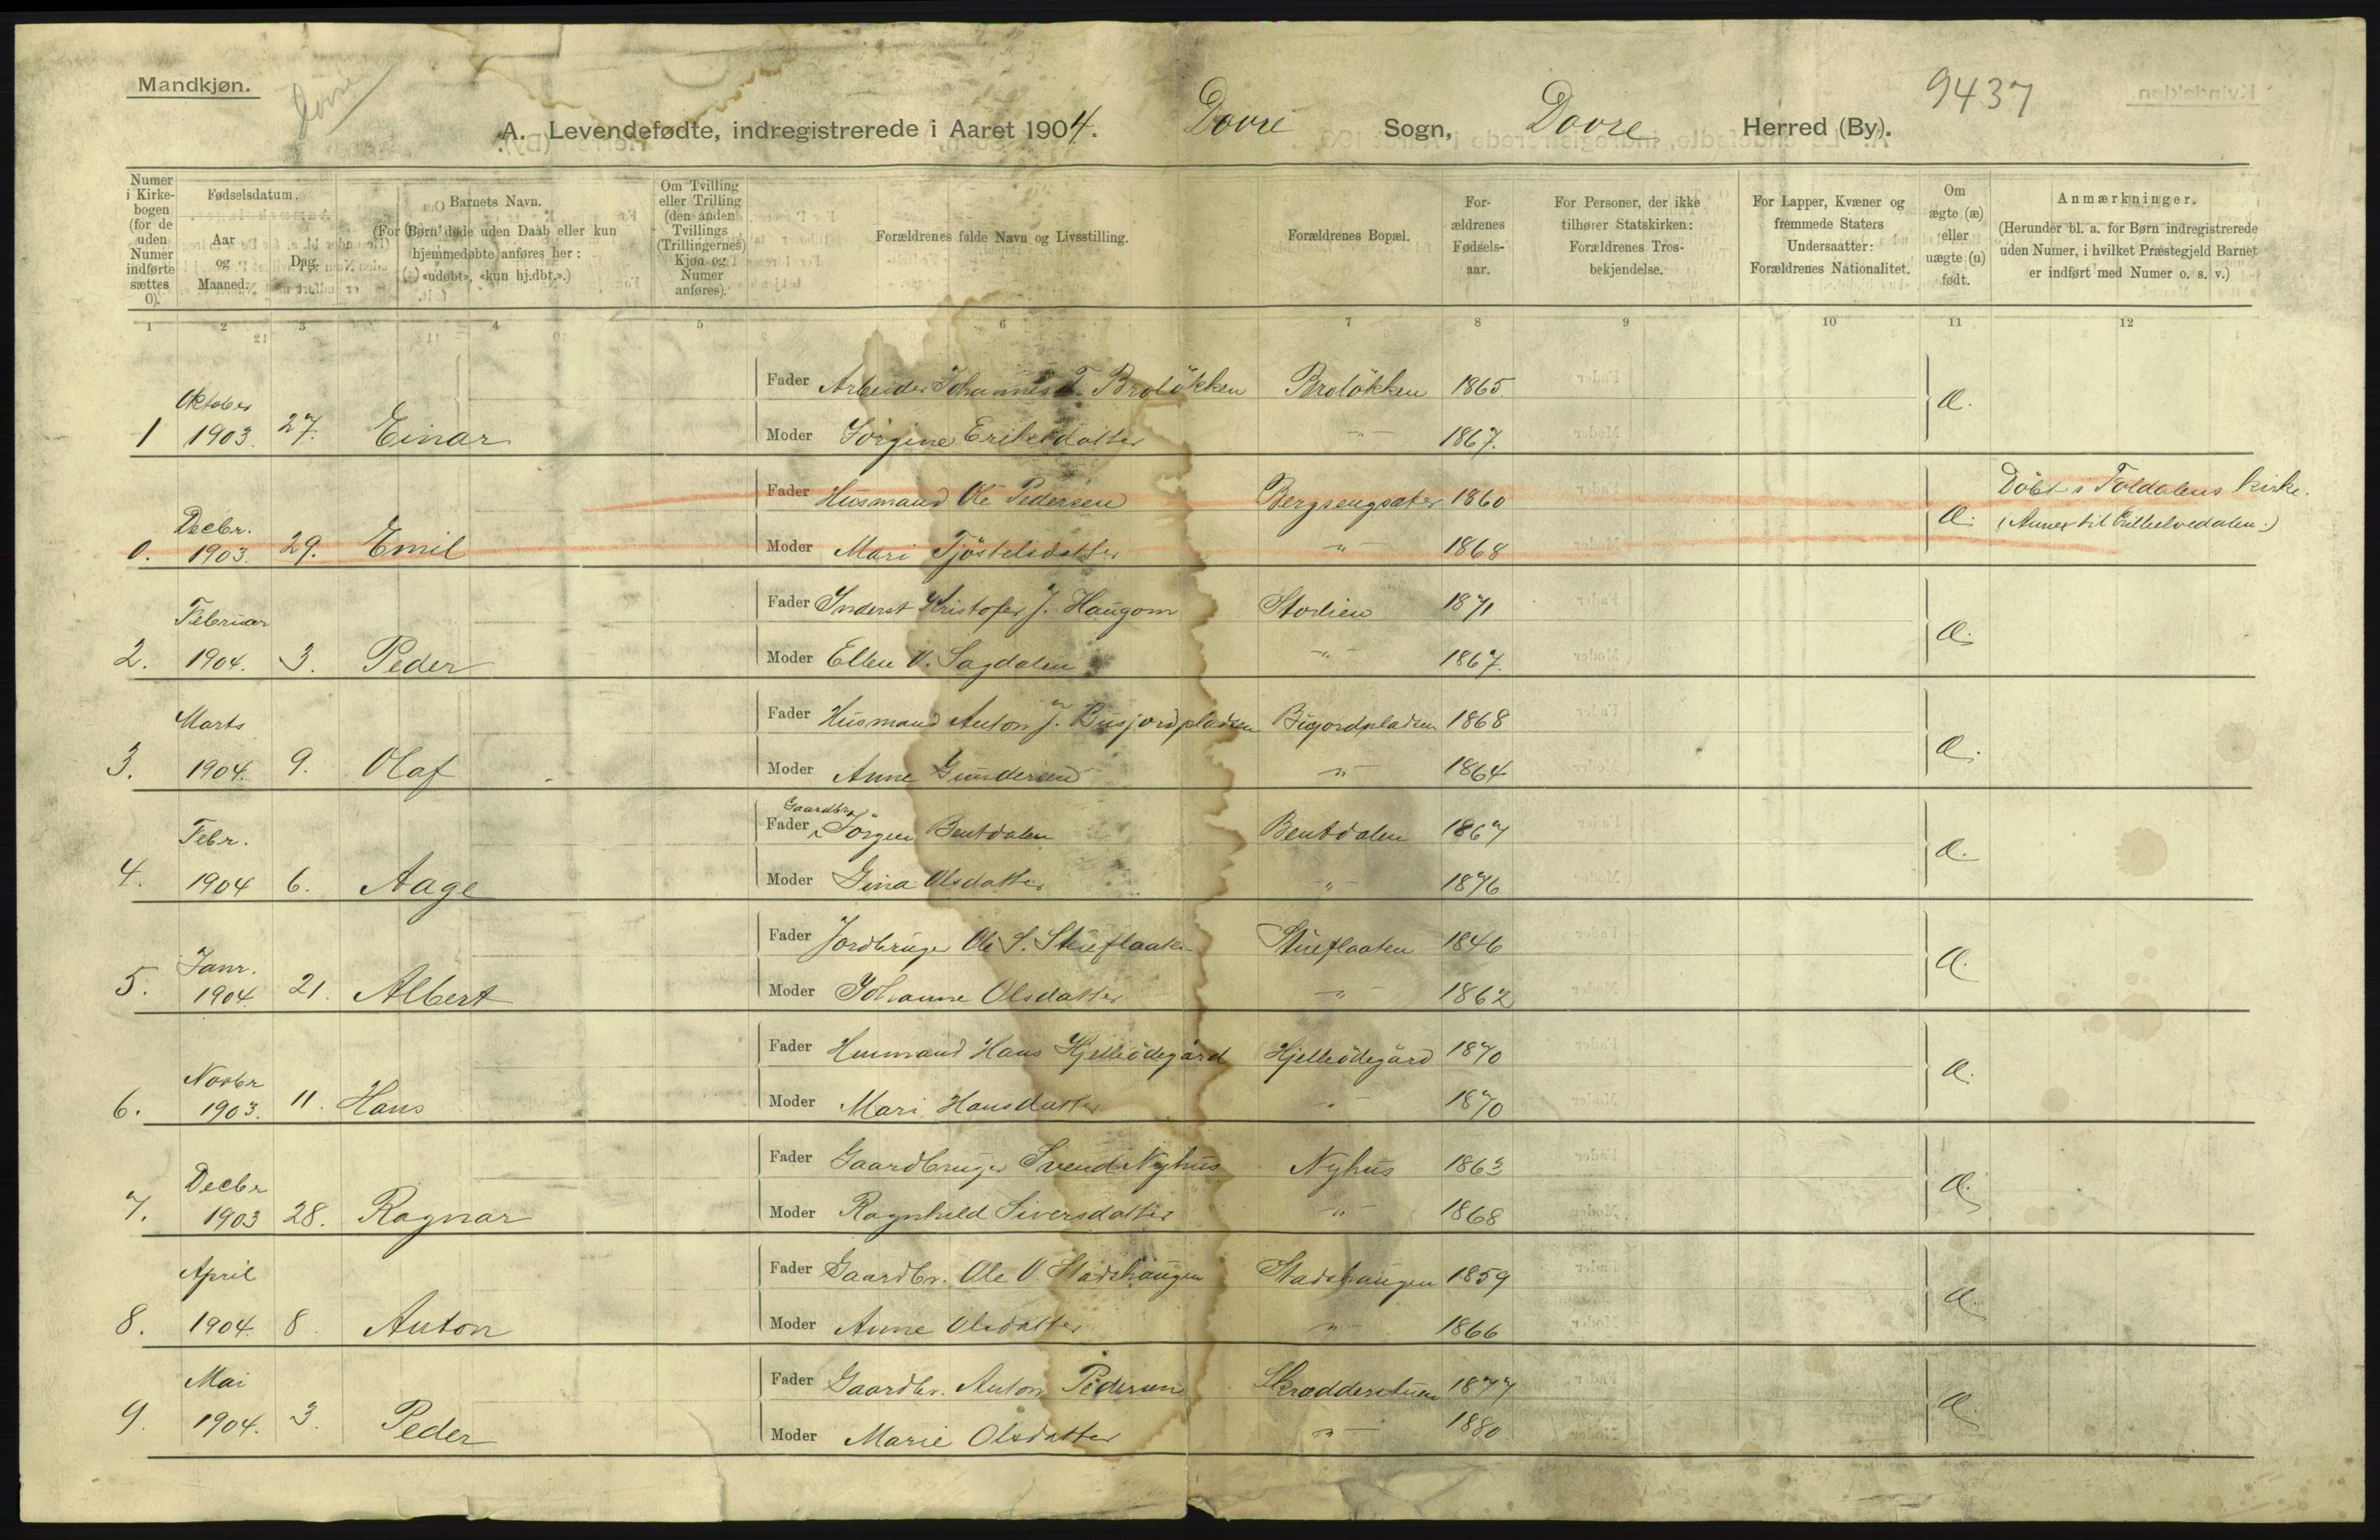 Mandkjøn.
Dovre
9437
A. Levendefødte, indregistrerede i Aaret 1904. Dovre Sogn, Dovre Herred (By).
Numer i Kirkebogen (for de uden Numer indførte sættes 0).
Fødselsdatum.
Aar og Maaned.
Dag.
Barnets Navn.
(For Børn døde uden Daab eller kun hjemmedøbte anføres her: (-) «udøbt», «kun hj.dbt.».)
Om Tvilling eller Trilling (den anden Tvillings (Trillingernes) Kjøn og Numer anføres).
Forældrenes fulde Navn og Livsstilling.
Forældrenes Bopæl.
Forældrenes Fødselsaar.
For Personer, der ikke tilhører Statskirken: Forældrenes Trosbekjendelse.
For Lapper, Kvæner og fremmede Staters Undersaatter: Forældrenes Nationalitet.
Om ægte (æ) eller uægte (u) født.
Anmærkninger.
(Herunder bl. a. for Børn indregistrerede uden Numer, i hvilket Præstegjeld Barnet er indført med Numer o. s. v.)
1 2 3 4 5 6 7 8 9 10 11 12
1 Oktober 1903. 27. Einar
Fader Arbeider Johannes T. Broløkken Broløkken 1865. æ.
Moder Jørgine Eriksdatter -"- 1867.
0. Decbr. 1903. 29. Emil
Fader Husmand Ole Pedersen Bergsengsæter 1860 æ. Döbt i Foldalens kirke.
Moder Mari Tjöstelsdatter -"- 1868 (Annex til Lilleelvedalen.)
2. Februar 1904. 3. Peder
Fader Inderst Kristofer J. Haugom Storlien 1871 æ.
Moder Ellen O. Sagdalen -"- 1867.
3. Marts 1904. 9. Olaf
Fader Husmand Anton J. Busjordpladsen Busjordpladsen 1868 æ.
Moder Anne Gundersen -"- 1864
4. Febr. 1904 6. Aage
Fader Gaardbr. Jörgen Bentdalen Bentdalen 1867 æ.
Moder Gina Olsdatter -"- 1876
5. Janr. 1904. 21. Albert
Fader Jordbruger Ole S. Stueflaaten Stueflaaten 1846 æ.
Moder Johanne Olsdatter -"- 1862
6. Novbr 1903. 11. Hans
Fader Husmand Hans Hjelleödegård Hjelleödegård 1870 æ.
Moder Mari Hansdatter -"- 1870
7. Decbr 1903 28. Ragnar
Fader Gaardbruger Svend Nyhus Nyhus 1863 æ.
Moder Ragnhild Siversdatter -"- 1868
8. April 1904. 8 Anton
Fader Gaardbr. Ole O. Stadshaugen Stadshaugen 1859 æ.
Moder Anne Olsdatter -"- 1866
9. Mai 1904. 3. Peder
Fader Gaardbr. Anton Pedersen Skrædderstuen 1877 æ.
Moder Marie Olsdatter -"- 1880